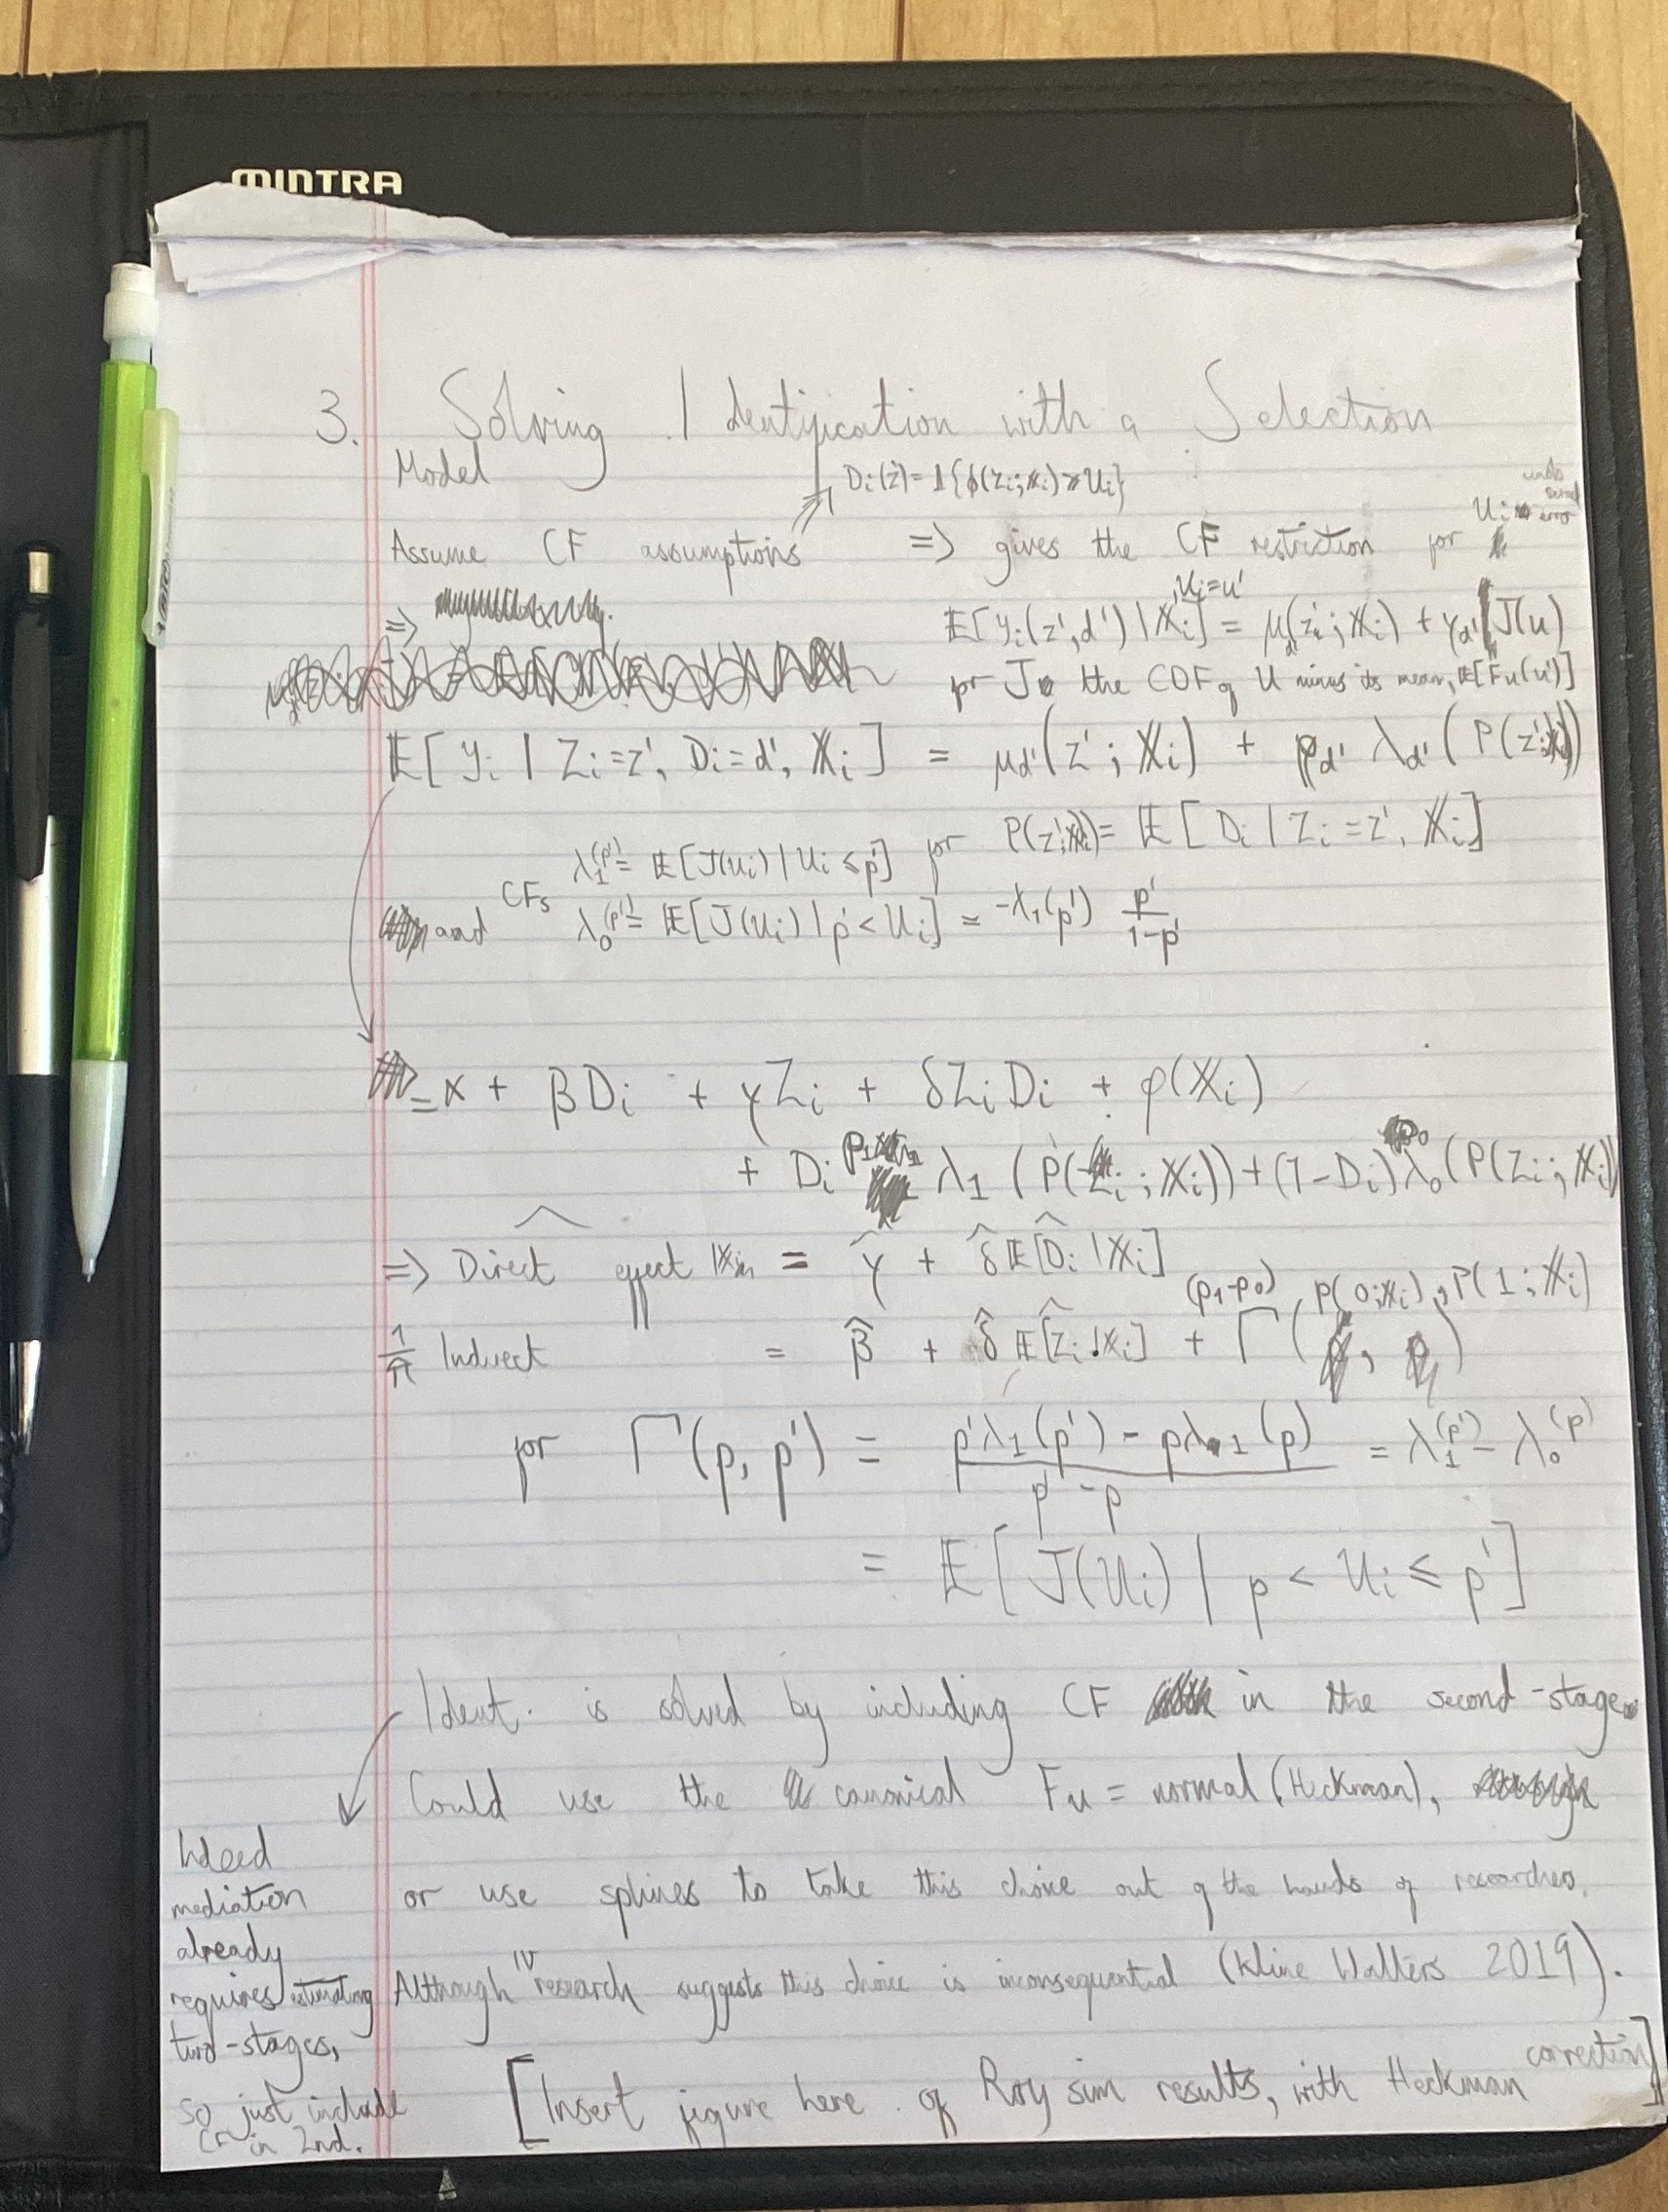 MINTRA
3. Solving Identification with a Selection
Model
D_i(z) = 1{ϕ(Z_i; X_i) ≥ U_i}
Assume CF assumptions => gives the CF restriction for U_i error
=>
E[Y_i(z', d') | X_i, U_i = u'] = μ_d'(z'; X_i) + γ_d' J(u)
for J the CDF of U minus its mean, E[F_u(u')]
E[Y_i | Z_i = z', D_i = d', X_i] = μ_d'(z'; X_i) + ρ_d' λ_d'(P(z'; X_i))
λ_1(p') = E[J(U_i) | U_i ≤ p'] for P(z'; X_i) = E[D_i | Z_i = z', X_i]
and CFs λ_0(p') = E[J(U_i) | p' < U_i] = -λ_1(p') p'/(1-p')
= α + βD_i + γZ_i + δZ_iD_i + φ(X_i)
+ D_i ρ_1 λ_1(P(Z_i; X_i)) + (1-D_i) ρ_0 λ_0(P(Z_i; X_i))
=> Direct effect | X_i = γ̂ + δ̂ Ê[D_i | X_i]
1/π̂ Indirect = β̂ + δ̂ Ê[Z_i | X_i] + (ρ_1-ρ_0) Γ(P(0; X_i), P(1; X_i))
for Γ(p, p') = (p'λ_1(p') - pλ_1(p))/(p' - p) = λ_1(p') - λ_0(p)
= E[J(U_i) | p < U_i ≤ p']
Ident. is solved by including CF in the second-stage.
Could use the canonical F_u = normal (Heckman),
or use splines to take this choice out of the hands of researches.
Although IV research suggests this choice is inconsequential (Kline Walters 2019).
[Insert figure here of Roy sim results, with Heckman correction]
Indeed
mediation
already
requires estimating
two-stages,
so just include
CF in 2nd.